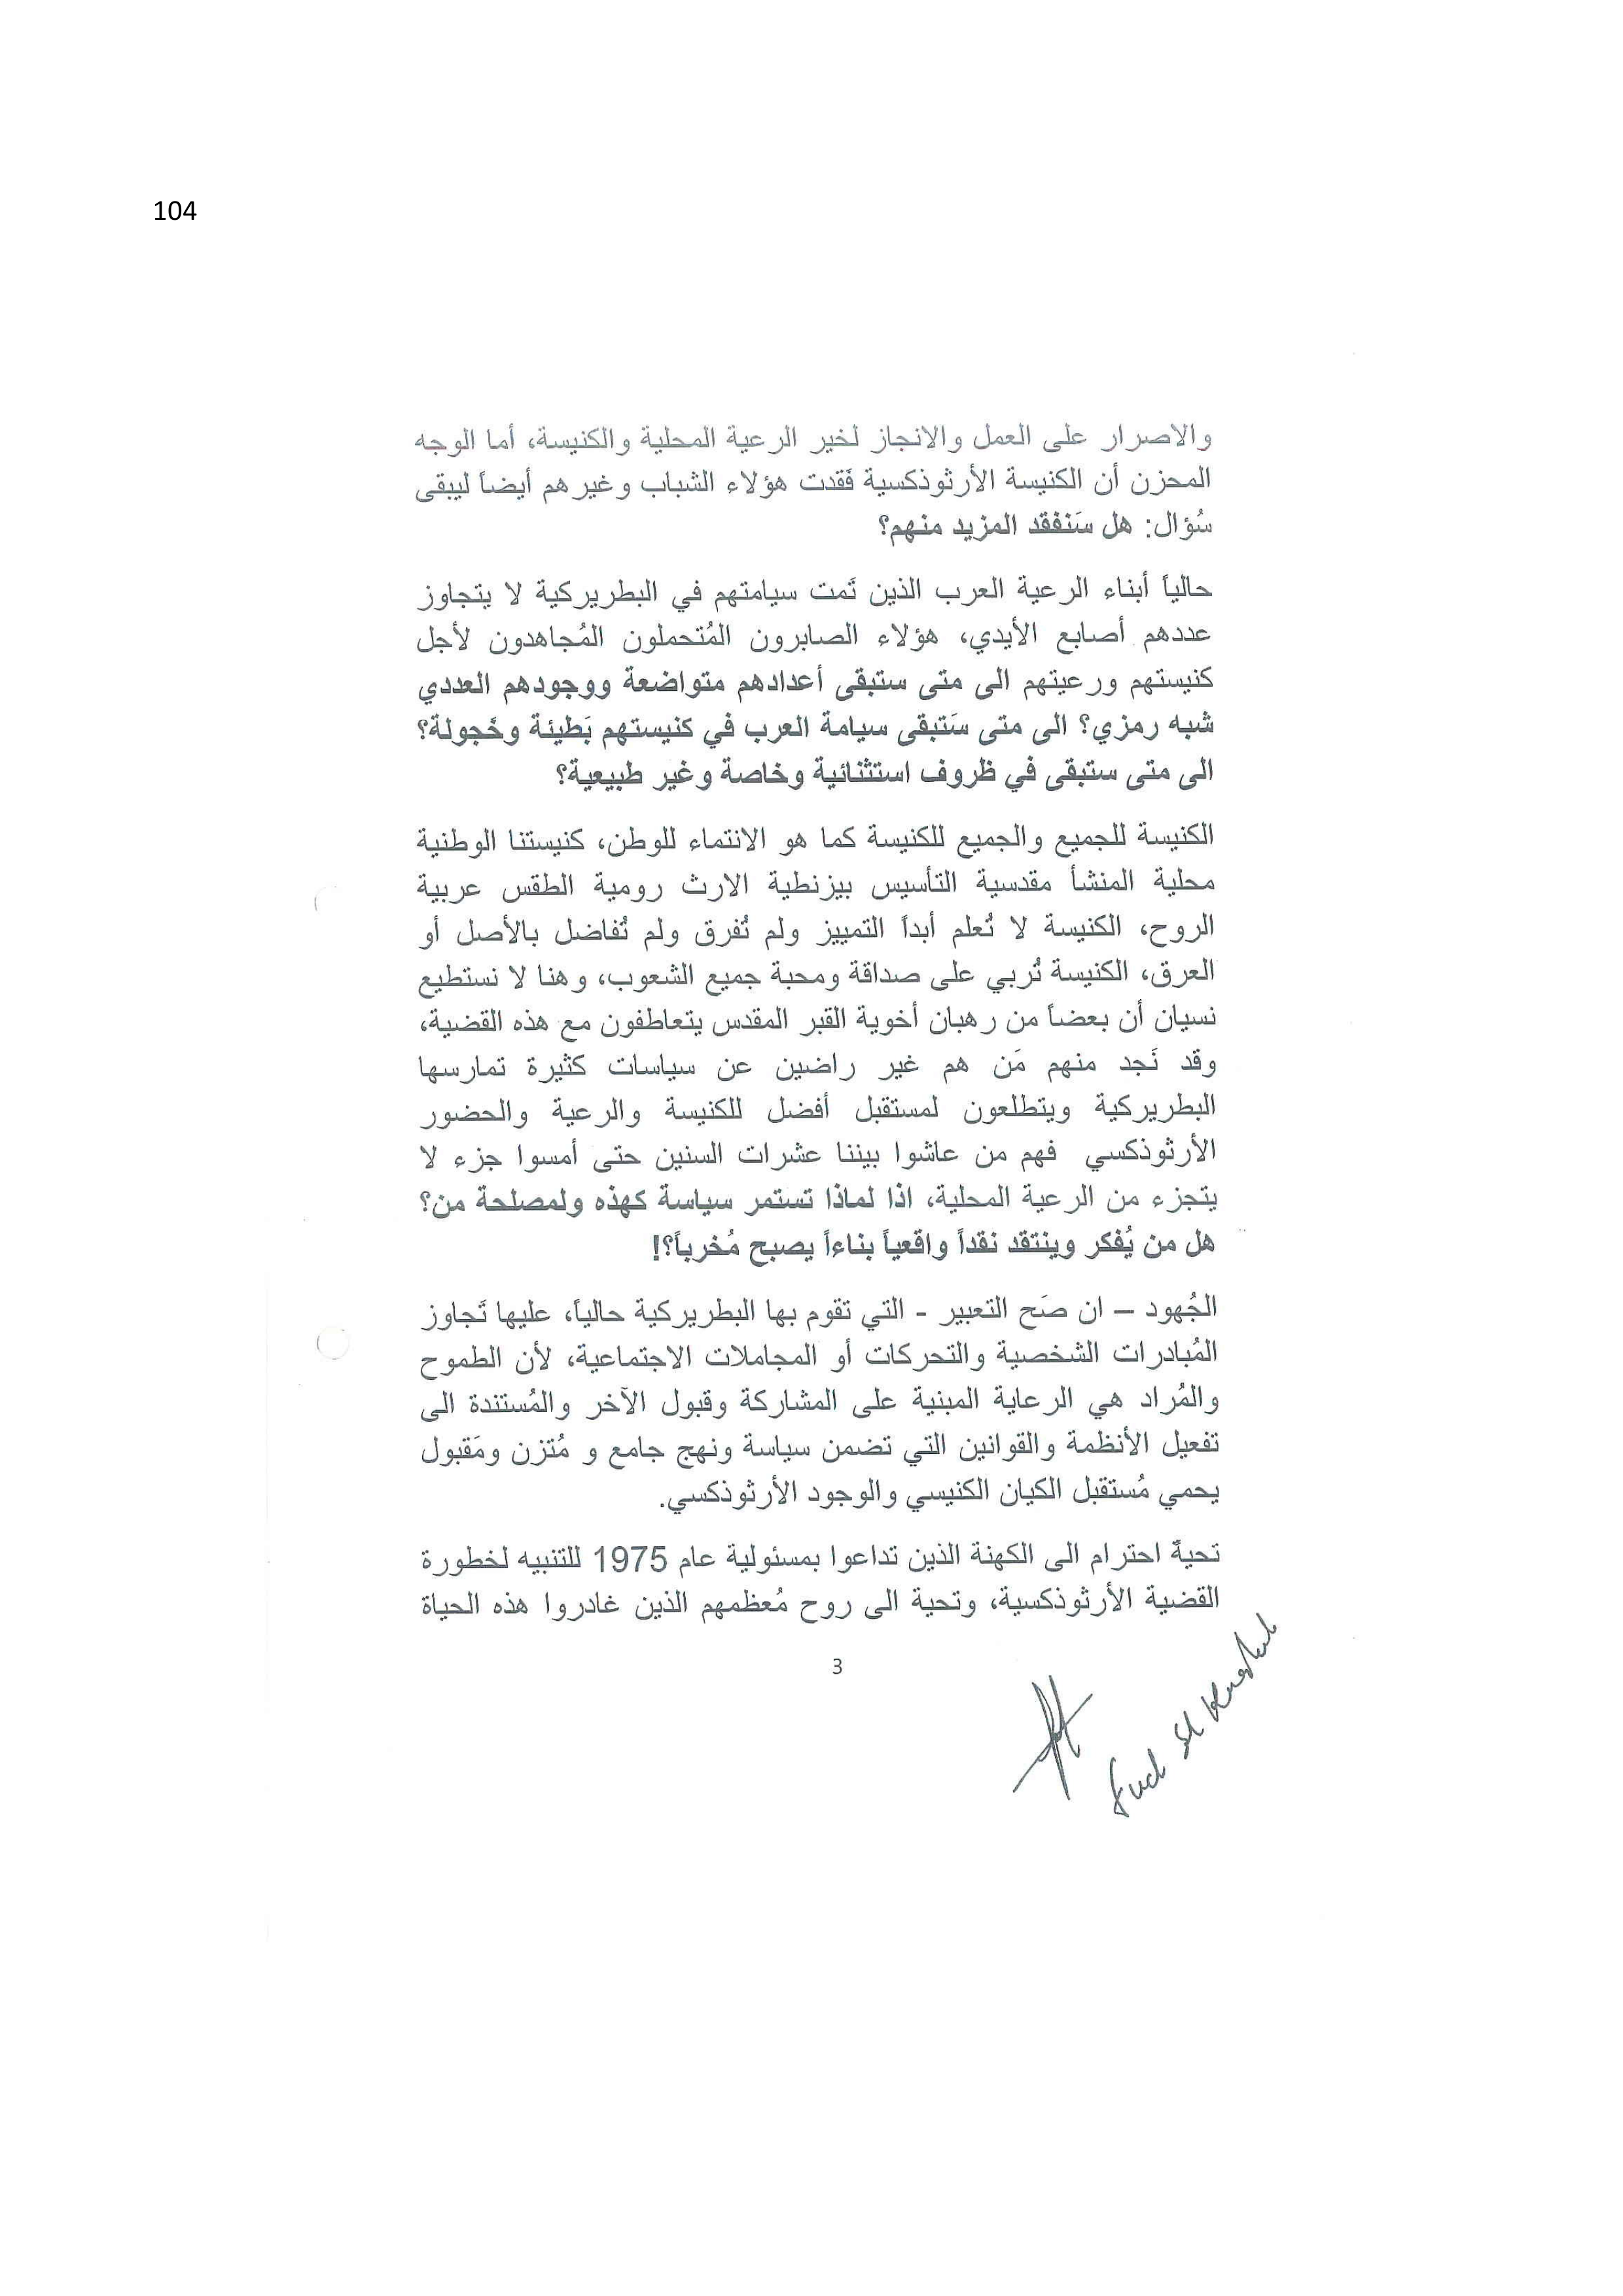 104
والاصرار على العمل والانجاز لخير الرعية المحلية والكنيسة، أما الوجه
المحزن أن الكنيسة الأرثوذكسية فَقدت هؤلاء الشباب وغيرهم أيضاً ليبقى
سُؤال: هل سَنفقد المزيد منهم؟
حالياً أبناء الرعية العرب الذين تَمت سيامتهم في البطريركية لا يتجاوز
عددهم أصابع الأيدي، هؤلاء الصابرون المُتحملون المُجاهدون لأجل
كنيستهم ورعيتهم الى متى ستبقى أعدادهم متواضعة ووجودهم العددي
شبه رمزي؟ الى متى سَتبقى سيامة العرب في كنيستهم بَطيئة وخَجولة؟
الى متى ستبقى في ظروف استثنائية وخاصة وغير طبيعية؟
الكنيسة للجميع والجميع للكنيسة كما هو الانتماء للوطن، كنيستنا الوطنية
محلية المنشأ مقدسية التأسيس بيزنطية الارث رومية الطقس عربية
الروح، الكنيسة لا تُعلم أبداً التمييز ولم تُفرق ولم تُفاضل بالأصل أو
العرق، الكنيسة تُربي على صداقة ومحبة جميع الشعوب، وهنا لا نستطيع
نسيان أن بعضاً من رهبان أخوية القبر المقدس يتعاطفون مع هذه القضية،
وقد نَجد منهم مَن هم غير راضين عن سياسات كثيرة تمارسها
البطريركية ويتطلعون لمستقبل أفضل للكنيسة والرعية والحضور
الأرثوذكسي فهم من عاشوا بيننا عشرات السنين حتى أمسوا جزء لا
يتجزء من الرعية المحلية، اذا لماذا تستمر سياسة كهذه ولمصلحة من؟
هل من يُفكر وينتقد نقداً واقعياً بناءاً يصبح مُخرباً؟!
الجُهود – ان صَح التعبير - التي تقوم بها البطريركية حالياً، عليها تَجاوز
المُبادرات الشخصية والتحركات أو المجاملات الاجتماعية، لأن الطموح
والمُراد هي الرعاية المبنية على المشاركة وقبول الآخر والمُستندة الى
تفعيل الأنظمة والقوانين التي تضمن سياسة ونهج جامع و مُتزن ومَقبول
يحمي مُستقبل الكيان الكنيسي والوجود الأرثوذكسي.
تحيةً احترام الى الكهنة الذين تداعوا بمسئولية عام 1975 للتنبيه لخطورة
القضية الأرثوذكسية، وتحية الى روح مُعظمهم الذين غادروا هذه الحياة
3